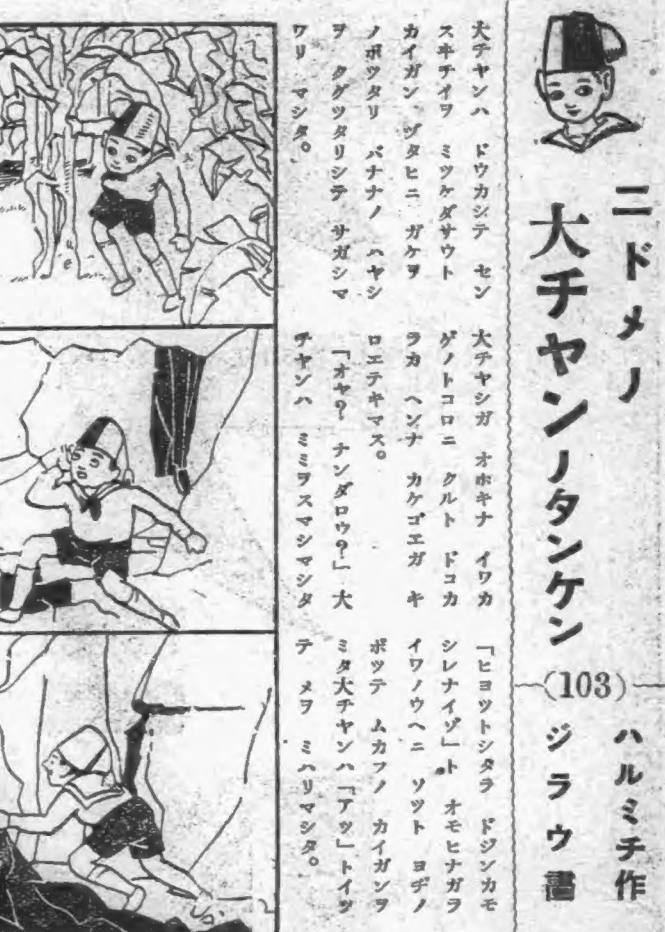 二ドメノ
大チヤンノタンケン
(103)
ハルミチ作
ジラウ畵
大チヤンハ ドウカシテ セン
スキテイヲ ミツケダサウト
カイガン ヅタヒニ ガケヲ
ノボツタリ バナナノ ハヤシ
ヲ クグツタリシテ サガシマ
ワリ マシタ。
大チヤンガ オホキナ イワカ
ゲノトコロニ クルト ドコカ
ラカ ヘンナ カケゴエガ キ
ロエテキマス。
「オヤ? ナンダロウ?」大
チヤンハ ミミヲスマシマシタ
「ヒヨツトシタラ ドジンカモ
シレナイゾ」ト オモヒナガラ
イワノウヘニ ソツト ヨヂノ
ボツテ ムカフノ カイガンヲ
ミタ大チヤンハ「アツ」トイツ
テ メヲ ミハリマシタ。